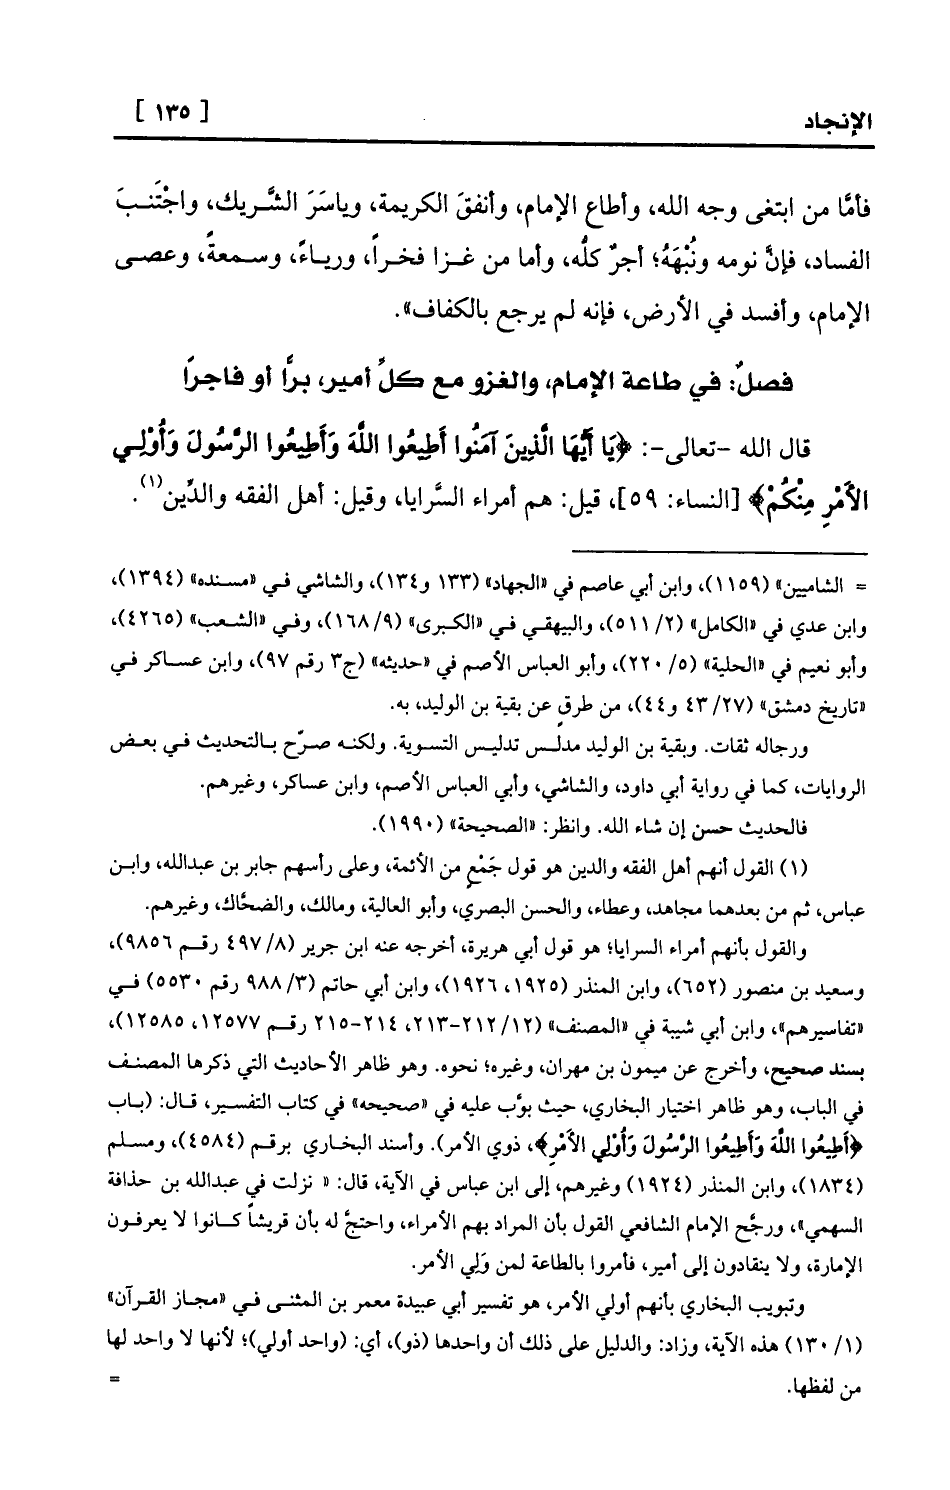 الإنجاد
[ ١٣٥ ]
فأمَّا من ابتغى وجه الله، وأطاع الإمام، وأنفقَ الكريمة، وياسَرَ الشَّريك، واجْتَنبَ
الفساد، فإنَّ نومه ونُبْهَهُ؛ أجرٌ كلُّه، وأما من غـزا فخـراً، وريـاءً، وسـمعةً، وعصـى
الإمام، وأفسد في الأرض، فإنه لم يرجع بالكفاف».
فصلٌ: في طاعة الإمام، والغزو مع كلِّ أمير، برًّا أو فاجرًا
قال الله -تعالى-: ﴿يَا أَيُّهَا الَّذِينَ آمَنُوا أَطِيعُوا اللَّهَ وَأَطِيعُوا الرَّسُولَ وَأُوْلِـي
الأَمْرِ مِنْكُمْ﴾ [النساء: ٥٩]، قيل: هم أمراء السَّرايا، وقيل: أهل الفقه والدِّين(١).
= الشاميين» (١١٥٩)، وابن أبي عاصم في «الجهاد» (١٣٣ و١٣٤)، والشاشي فـي «مسنده» (١٣٩٤)،
وابن عدي في «الكامل» (٢/ ٥١١)، والبيهقـي فـي «الكـبرى» (٩/ ١٦٨)، وفـي «الشـعب» (٤٢٦٥)،
وأبو نعيم في «الحلية» (٥/ ٢٢٠)، وأبو العباس الأصم في «حديثه» (ج٣ رقم ٩٧)، وابن عسـاكر فـي
«تاريخ دمشق» (٢٧/ ٤٣ و٤٤)، من طرقٍ عن بقية بن الوليد، به.
ورجاله ثقات. وبقية بن الوليد مدلـس تدليس التسوية. ولكنـه صـرّح بـالتحديث فـي بعـض
الروايات، كما في رواية أبي داود، والشاشي، وأبي العباس الأصم، وابن عساكر، وغيرهم.
فالحديث حسن إن شاء الله. وانظر: «الصحيحة» (١٩٩٠).
(١) القول أنهم أهل الفقه والدين هو قول جَمْعٍ من الأئمة، وعلى رأسهم جابر بن عبدالله، وابـن
عباس، ثم من بعدهما مجاهد، وعطاء، والحسن البصري، وأبو العالية، ومالك، والضحَّاك، وغيرهم.
والقول بأنهم أمراء السرايا؛ هو قول أبي هريرة، أخرجه عنه ابن جرير (٨/ ٤٩٧ رقـم ٩٨٥٦)،
وسعيد بن منصور (٦٥٢)، وابن المنذر (١٩٢٥، ١٩٢٦)، وابن أبي حاتم (٣/ ٩٨٨ رقم ٥٥٣٠) فـي
«تفاسيرهم»، وابن أبي شيبة في «المصنف» (١٢/ ٢١٢-٢١٣، ٢١٤-٢١٥ رقـم ١٢٥٧٧، ١٢٥٨٥)،
بسند صحيح، وأخرج عن ميمون بن مهران، وغيره؛ نحوه. وهو ظاهر الأحاديث التي ذكرها المصنـف
في الباب، وهو ظاهر اختيار البخاري، حيث بوَّب عليه في «صحيحه» في كتاب التفسير، قـال: (بـاب
﴿أَطِيعُوا اللَّهَ وَأَطِيعُوا الرَّسُولَ وَأُوْلِي الأَمْرِ﴾، ذوي الأمر). وأسند البخاري برقـم (٤٥٨٤)، ومسلم
(١٨٣٤)، وابن المنذر (١٩٢٤) وغيرهم، إلى ابن عباس في الآية، قال: « نزلت في عبدالله بن حذافة
السهمي»، ورجَّح الإمام الشافعي القول بأن المراد بهم الأمراء، واحتجَّ له بأن قريشاً كـانوا لا يعرفـون
الإمارة، ولا ينقادون إلى أمير، فأمروا بالطاعة لمن وَلِي الأمر.
وتبويب البخاري بأنهم أولي الأمر، هو تفسير أبي عبيدة معمر بن المثنـى فـي «مجـاز القـرآن»
(١/ ١٣٠) هذه الآية، وزاد: والدليل على ذلك أن واحدها (ذو)، أي: (واحد أولي)؛ لأنها لا واحد لها
من لفظها.
=